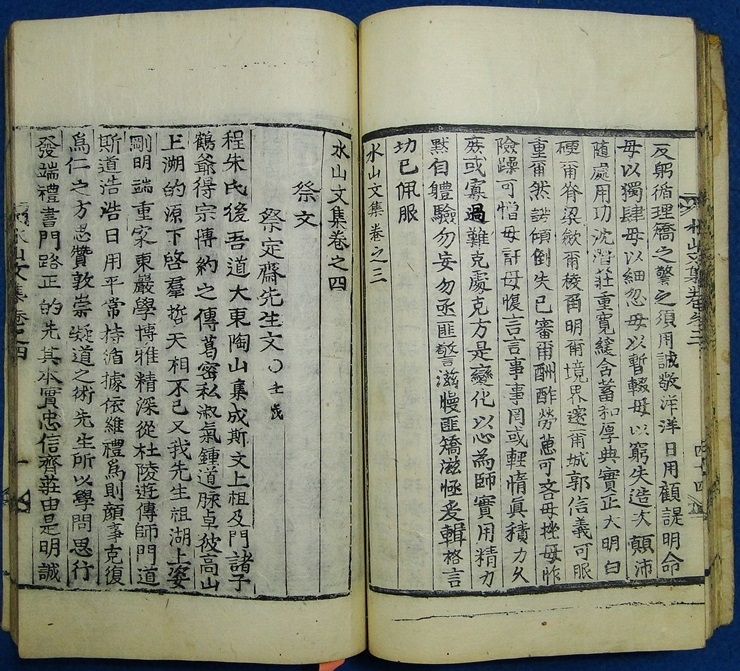 反躬循理矯之警之須用誠敬洋洋日用顧諟明命
毋以獨肆毋以細忽毋以暫輟毋以窮失造次顛沛
隨處用功沈潛莊重寬緩含蓄和厚典實正大明白
硬爾脊梁歛爾稜角明爾境界邃爾城郭信義可服
重爾然諾傾倒失已審爾酬酢勞蔥可吝毋挫毋怍
險躁可憎毋訐毋愎言言事事罔或輕惰眞積力久
庶或寡過難克處克方是變化以心為師實用精力
默自體驗勿妄勿亟匪警滋慢匪矯滋極爰輯格言
功已佩服
水山文集卷之三
水山文集卷之四
祭文
祭定齋先生文
程朱氏後吾道大東陶山集成斯文上祖及門諸子
鶴爺得宗博約之傳葛密私淑氣鍾道脉卓彼高山
上溯的源下啓羣哲天相不已又我先生祖湖上婆
剛明端重家東巖學博雅精深從杜陵遊傳師門道
斯道浩浩日用平常持循據依維禮爲則顔事克復
爲仁之方忠贊敦崇凝道之術先生所以學問思行
發端禮書門路正的先其本實忠信齊莊由是明誠
水山文集卷之四
一